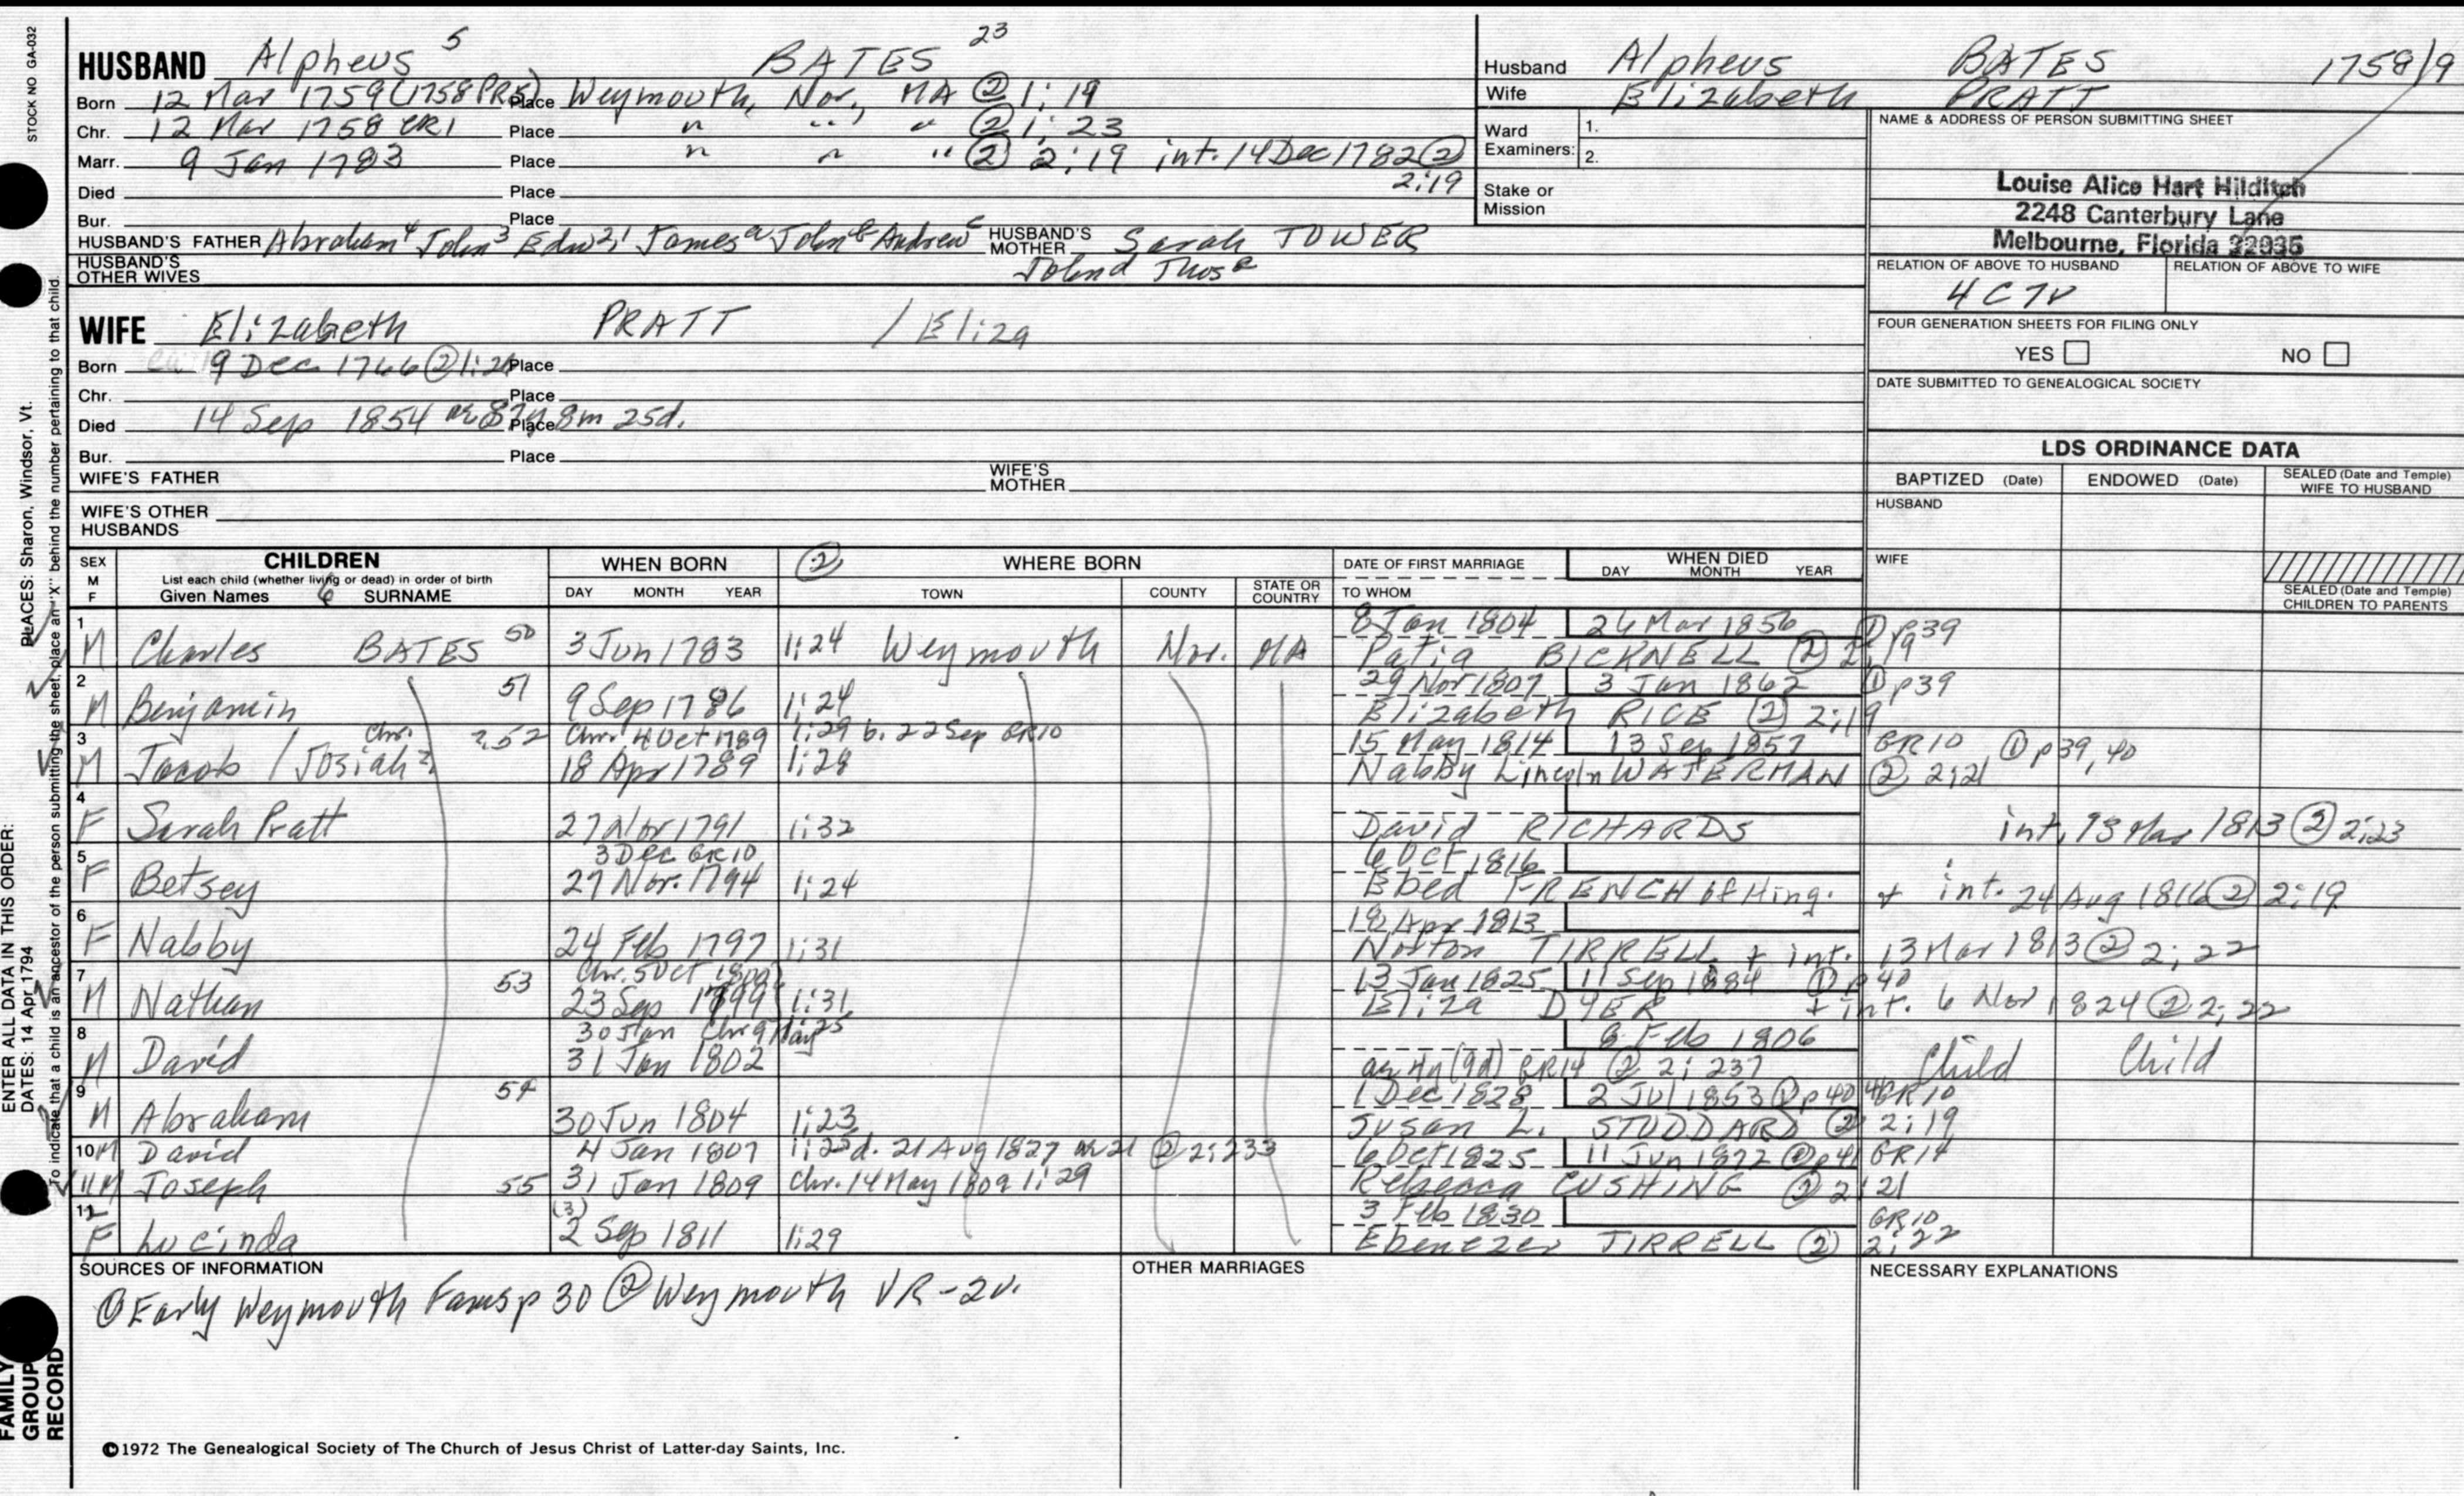 STOCK NO GA-032
HUSBAND Alpheus 5 BATES 23
Born 12 Mar 1759 (1758 PR5) Place Weymouth, Nor., MA ② 1:19
Chr. 12 Mar 1758 CR1 Place " " " ② 1:23
Marr. 9 Jan 1783 Place " " " ② 2:19 int. 14 Dec 1782 ② 2:19
Died Place
Bur. Place
HUSBAND'S FATHER Abraham 4 John 3 Edw 2, 1 James a John b Andrew c HUSBAND'S MOTHER Sarah TOWER
HUSBAND'S OTHER WIVES John d Thos e
WIFE Elizabeth PRATT / Eliza
Born 19 Dec 1766 ② 1: Place
Chr. Place
Died 14 Sep 1854 Place 8m 25d.
Bur. Place
WIFE'S FATHER WIFE'S MOTHER
WIFE'S OTHER HUSBANDS
Husband Alpheus BATES 1758/9
Wife Elizabeth PRATT
Ward Examiners: 1.
2.
Stake or Mission
NAME & ADDRESS OF PERSON SUBMITTING SHEET
Louise Alice Hart Hilditch
2248 Canterbury Lane
Melbourne, Florida 32935
RELATION OF ABOVE TO HUSBAND RELATION OF ABOVE TO WIFE
4C7r
FOUR GENERATION SHEETS FOR FILING ONLY
YES NO
DATE SUBMITTED TO GENEALOGICAL SOCIETY
LDS ORDINANCE DATA
BAPTIZED (Date) ENDOWED (Date) SEALED (Date and Temple) WIFE TO HUSBAND
HUSBAND
WIFE
SEALED (Date and Temple) CHILDREN TO PARENTS
SEX M F CHILDREN WHEN BORN ② WHERE BORN DATE OF FIRST MARRIAGE WHEN DIED
List each child (whether living or dead) in order of birth DAY MONTH YEAR
Given Names 6 SURNAME DAY MONTH YEAR TOWN COUNTY STATE OR COUNTRY TO WHOM
1 8 Jan 1804 26 Mar 1856 ① p39
M Charles BATES 50 3 Jun 1783 1:24 Weymouth Nor. MA BICKNELL ② 2:19
2 51 29 Nov 1807 3 Jan 1862 ① p39
M Benjamin 9 Sep 1786 1:24 Elizabeth RICE ② 2:19
3 Chr. ?52 Chr. 4 Oct 1789 1:29 b. 22 Sep GR10 15 May 1814 13 Sep 1857 GR10 ① p39, 40
M Jacob / Josiah? 18 Apr 1789 1:28 Nabby Lincoln WATERMAN ② 2:21
4
F Sarah Pratt 27 Nov 1791 1:32 David RICHARDS int. 13 Mar 1813 ② 2:23
5 3 Dec GR10 6 Oct 1816
F Betsey 27 Nov. 1794 1:24 Ebed FRENCH of Hing. + int. 24 Aug 1816 ② 2:19
6 18 Apr 1813
F Nabby 24 Feb 1797 1:31 Norton TIRRELL + int. 13 Mar 1813 ② 2:22
7 53 Chr. 5 Oct 13 Jan 1825 11 Sep 1884 ① p40
M Nathan 23 Sep 1799 1:31 Eliza DYER + int. 6 Nov 1824 ② 2:22
8 30 Jan Chr 9 May 25 8 Feb 1806
M David 31 Jan 1802 ae 4y (9d) GR14 ② 2:237 Child Child
9 54 1 Dec 1828 2 Jul 1853 ① p40 GR10
M Abraham 30 Jun 1804 1:23 Susan L. STODDARD ② 2:19
10 M David 4 Jan 1807 1:25 d. 21 Aug 1827 ae 21 ② 2:233 6 Oct 1825 11 Jun 1872 ① p41 GR14
11 M Joseph 55 31 Jan 1809 Chr. 14 May 1809 1:29 Rebecca CUSHING ② 2:21
12 (3) 3 Feb 1830 GR10
F Lucinda 2 Sep 1811 1:29 Ebenezer TIRRELL ② 2:22
SOURCES OF INFORMATION OTHER MARRIAGES NECESSARY EXPLANATIONS
① Early Weymouth Fams p 30 ② Weymouth VR-2v.
©1972 The Genealogical Society of The Church of Jesus Christ of Latter-day Saints, Inc.
FAMILY GROUP RECORD
ENTER ALL DATA IN THIS ORDER:
DATES: 14 Apr 1794 PLACES: Sharon, Windsor, Vt.
To indicate that a child is an ancestor of the person submitting the sheet, place an "X" behind the number pertaining to that child.